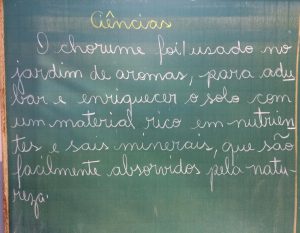 Ciências
O chorume foi usado no
jardim de aromas, para adu
bar e enriquecer o solo com
um material rico em nutrien
tes e sais minerais, que são
facilmente absorvidos pela natu-
reza.